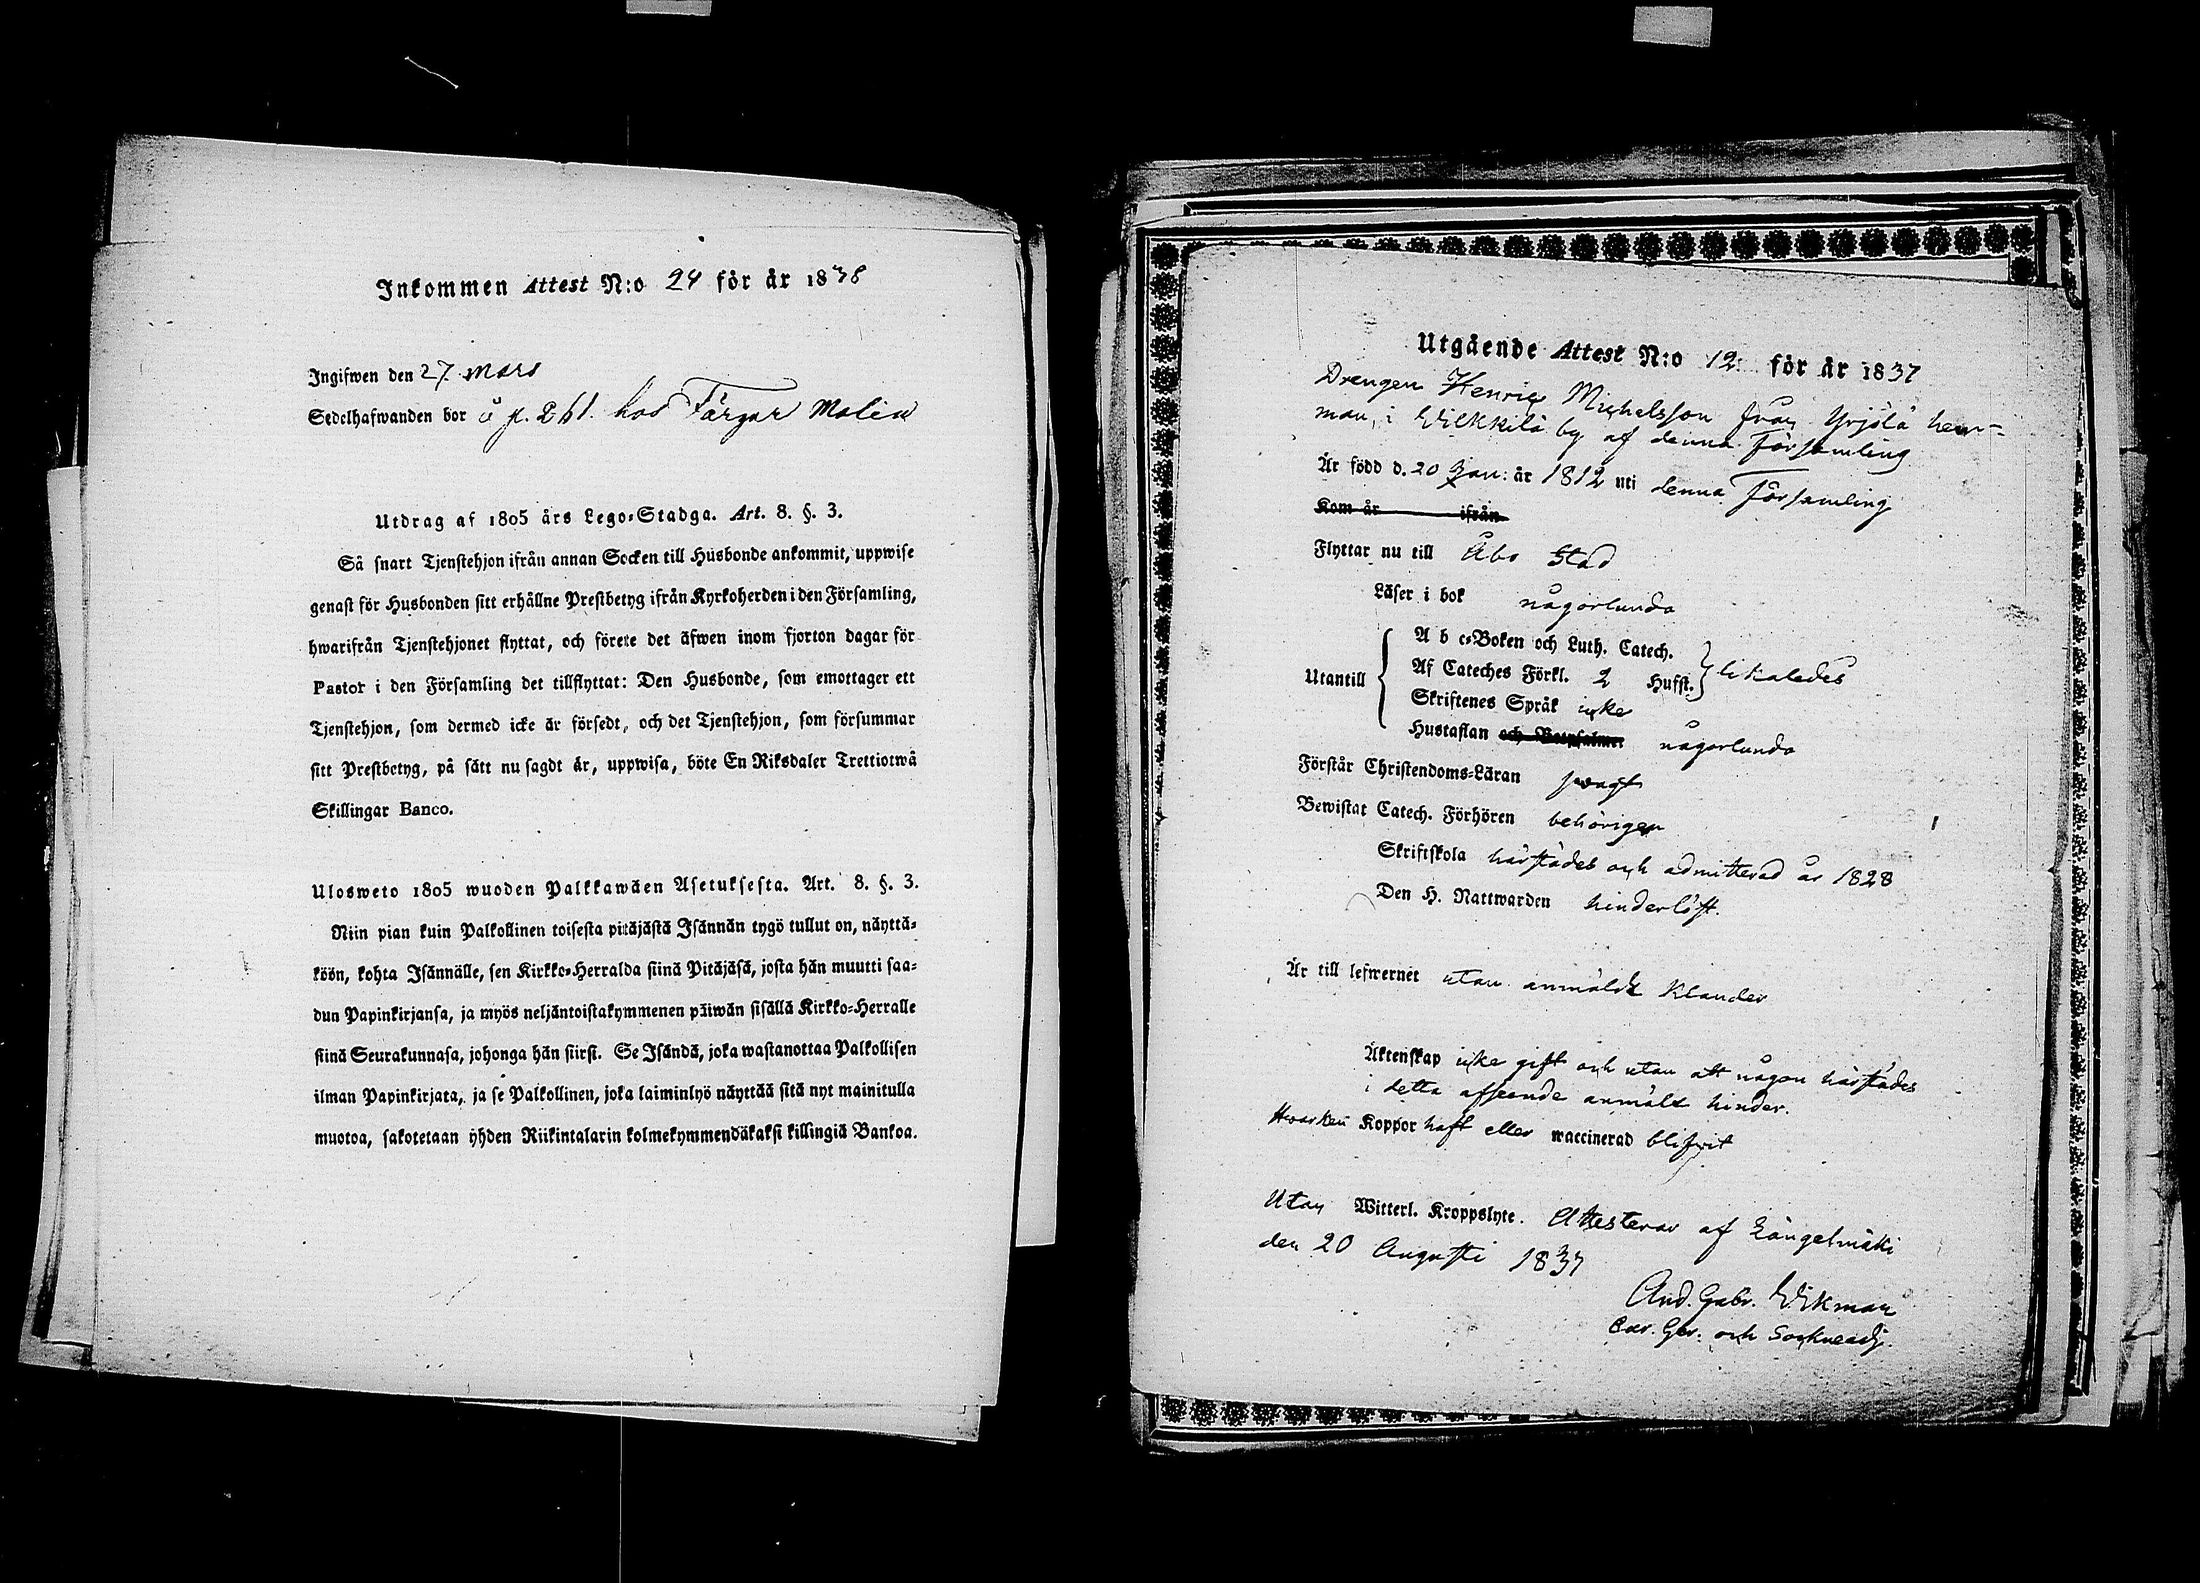 Inkommen Attest N:o 24 för år 1838
Ingifwen den 27. Mars
Sedelhafwanden bor å p. 261. hos Färgar Malin
Utdrag af 1805 års Lego-Stadga. Art. 8. §. 3.
Så snart Tjenstehjon ifrån annan Socken till Husbonde ankommit, uppwise
genast för Husbonden sitt erhållne Prestbetyg ifrån Kyrkoherden i den Församling,
hwarifrån Tjenstehjonet flyttat, och förete det äfwen inom fjorton dagar för
Pastor i den Församling det tillflyttat: Den Husbonde, som emottager ett
Tjenstehjon, som dermed icke är försedt, och det Tjenstehjon, som försummar
sitt Prestbetyg, på sätt nu sagdt är, uppwisa, böte En Riksdaler Trettiotwå
Skillingar Banco.
Ulosweto 1805 wuoden Palkkawäen Asetuksesta. Art. 8. §. 3.
Niin pian kuin Palkollinen toisesta pitäjästä Isännän tygö tullut on, näyttä-
köön, kohta Isännälle, sen Kirkko-Herralda siinä Pitäjäsä, josta hän muutti saa-
dun Papinkirjansa, ja myös neljäntoistakymmenen päiwän sisällä Kirkko-Herralle
siinä Seurakunnasa, johonga hän siirsi. Se Isändä, joka wastanottaa Palkollisen
ilman Papinkirjata, ja se Palkollinen, joka laiminlyö näyttää sitä nyt mainitulla
muotoa, sakotetaan yhden Riikintalarin kolmekymmendäkaksi killingiä Bankoa.
Utgående Attest N:o 12. för år 1837
Drengen Henric Michelsson från Yrjölä hem-
man, i Wilkkilä by af denna Församling
Är född d. 20 Jan: år 1812 uti denna Församling
Kom år ifrån
Flyttar nu till Åbo Stad
Läser i bok någorlunda
A b c-Boken och Luth. Catech.
Utantill Af Cateches Förkl. 2 Hufst. likaledes
Skriftenes Språk icke
Hustaflan och Botpsalmer någorlunda
Förstår Christendoms-Läran swagt
Bewistat Catech. Förhören behörigen
Skriftskola härstädes och admitterad år 1828
Den H. Nattwarden hinderlöst.
Är till lefwernet utan anmäldt klander
Äktenskap icke gift och utan att någon härstädes
i detta afseende anmält hinder.
Hwarken Koppor haft eller waccinerad blifwit
Utan Witterl. Kroppslyte. Attesterar af Längelmäki
den 20 Augusti 1837
And. Gabr. Wikman
Cur. Ger. och Sockneadj.